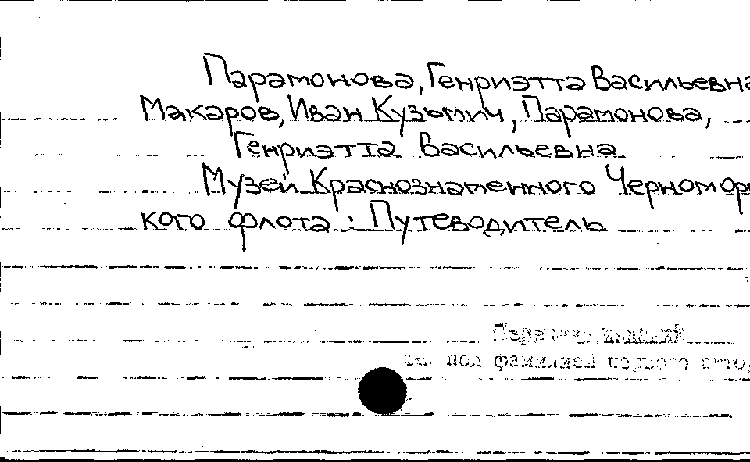 Парамонова, Генриэтта Васильевна
Макаров, Иван Кузьмич, Парамонова,
Генриэтта Васильевна
Музей Краснознаменного Черномор
кого флота : Путеводитель
см. под фамилией первого